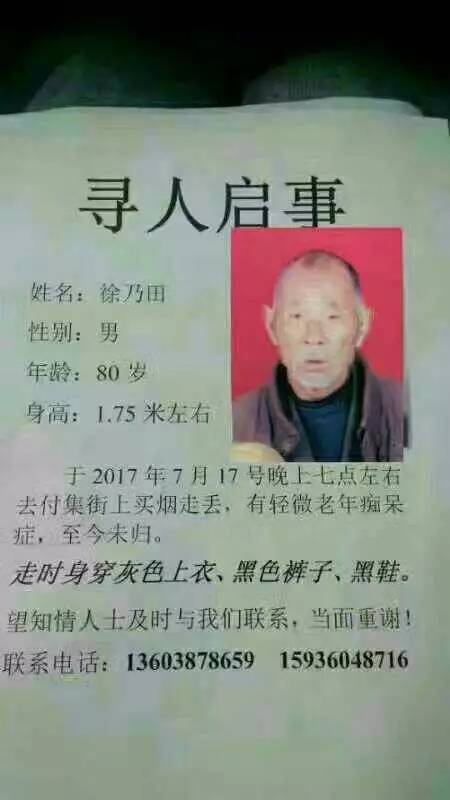 寻人启事
姓名：徐乃田
性别：男
年龄：80 岁
身高：1.75 米左右
于 2017 年 7 月 17 号晚上七点左右
去付集街上买烟走丢，有轻微老年痴呆
症，至今未归。
走时身穿灰色上衣、黑色裤子、黑鞋。
望知情人士及时与我们联系，当面重谢！
联系电话：13603878659 15936048716